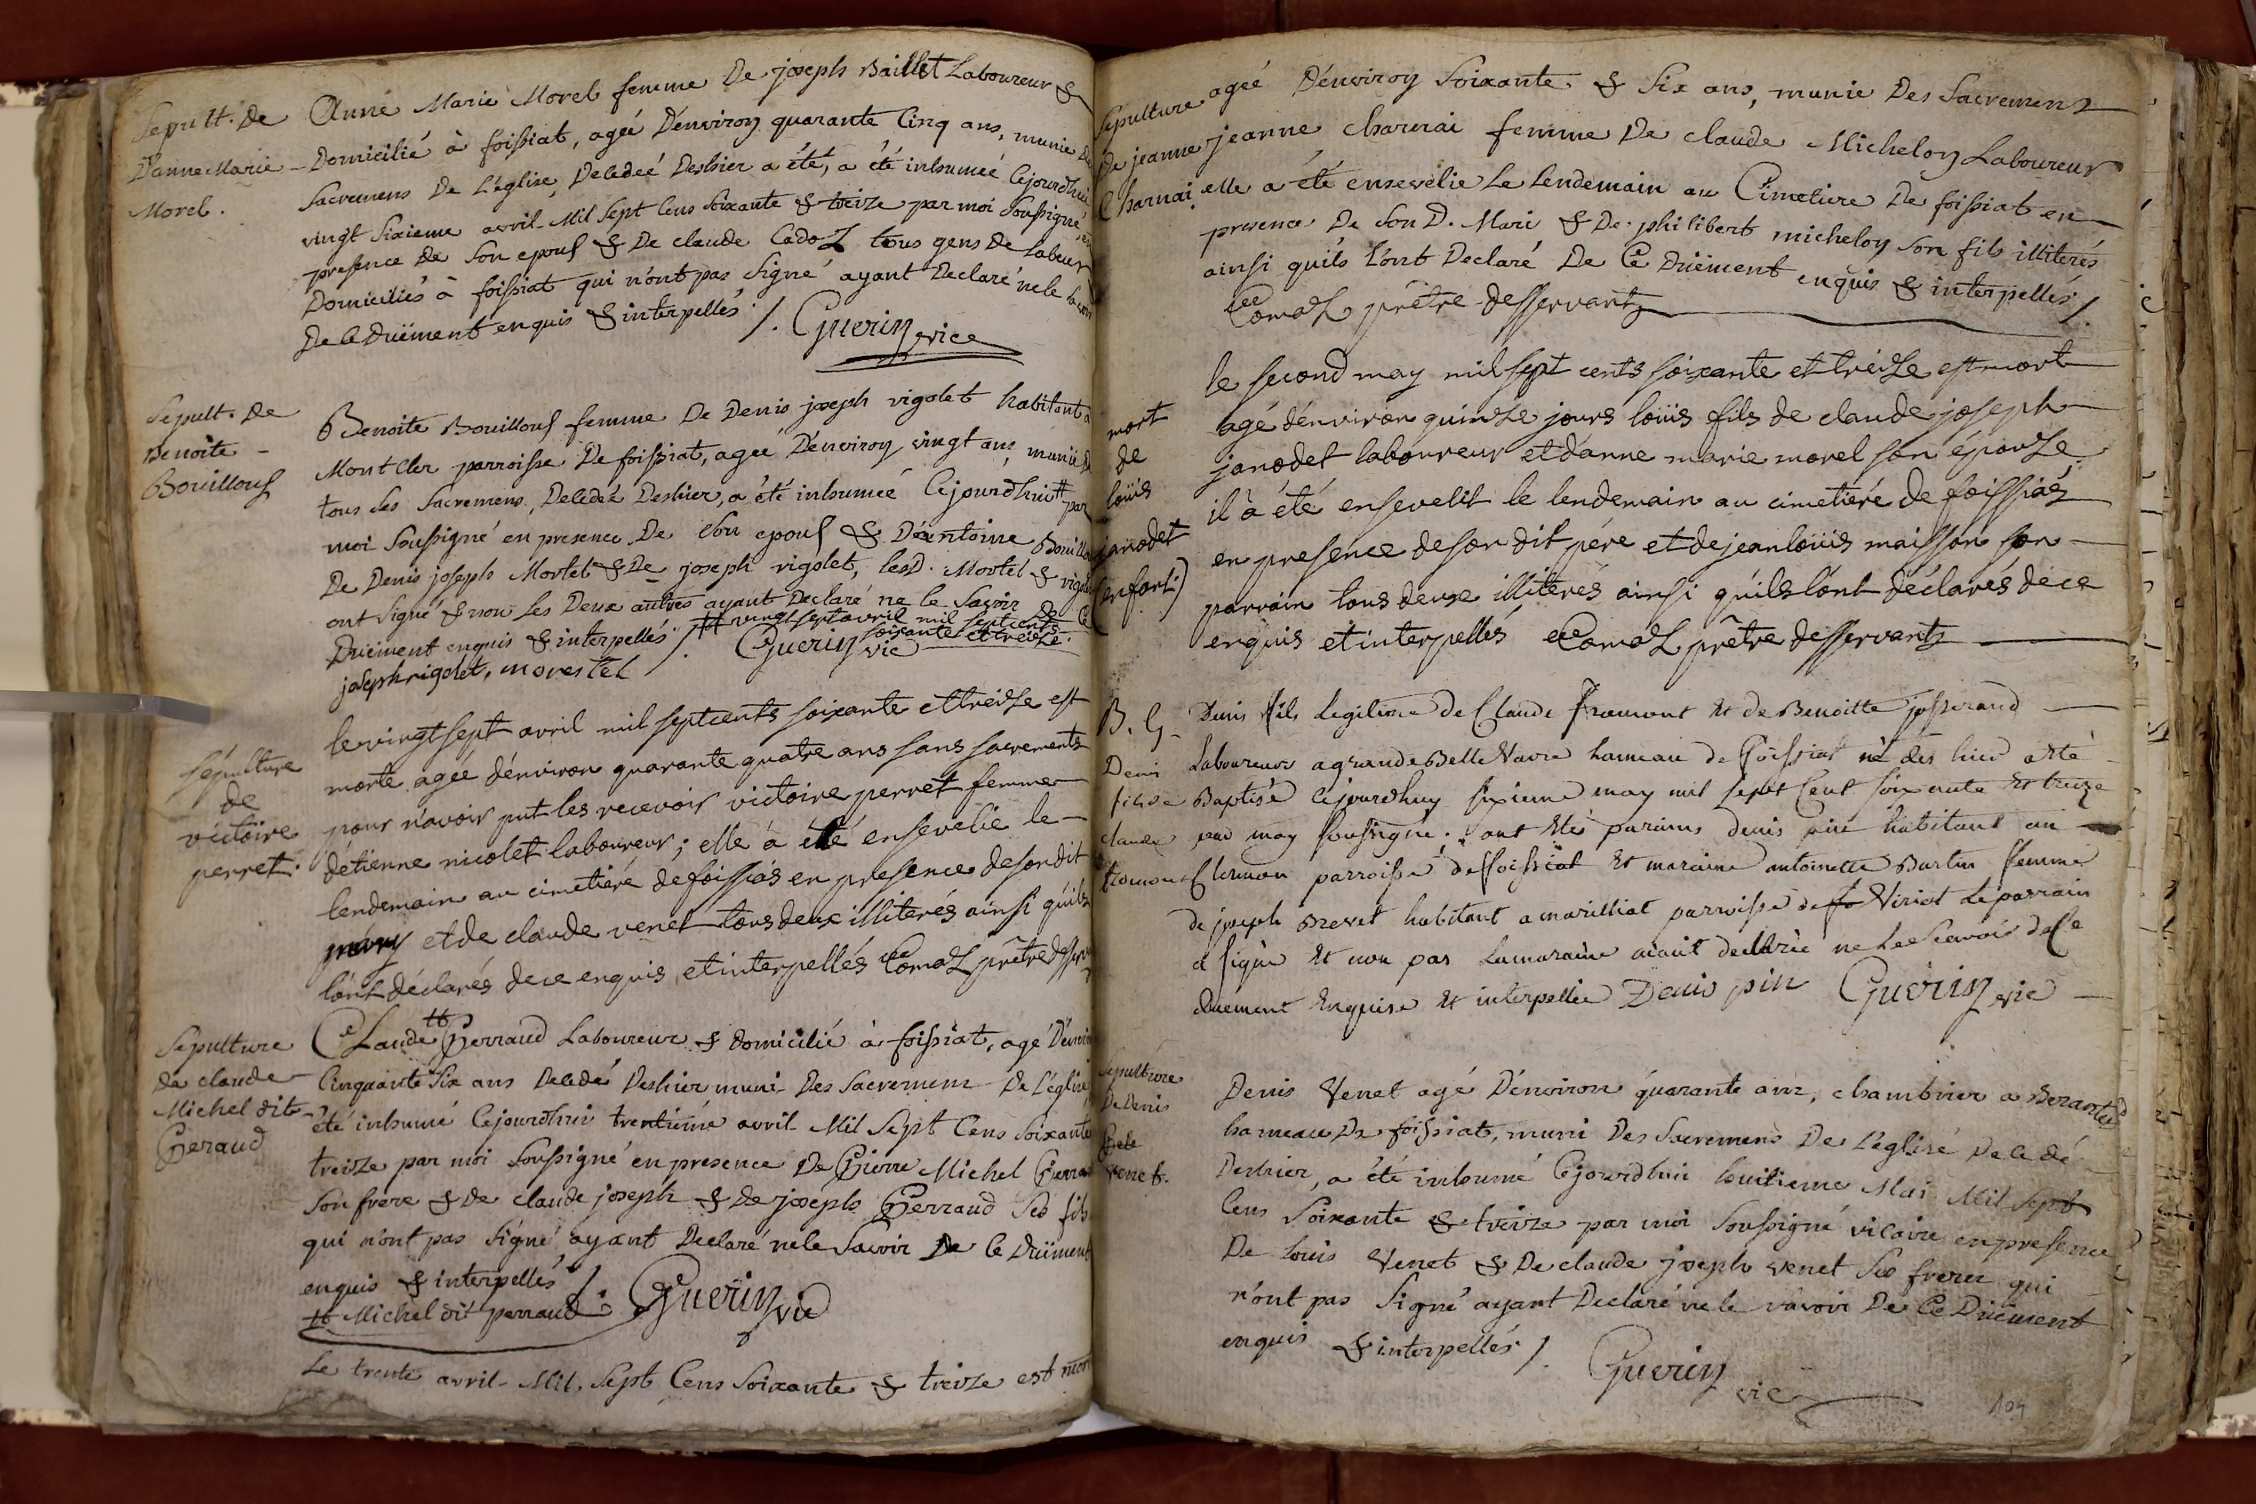 Sepult. de
D'anne Marie
Morel.
Anne Marie Morel femme De joseph Baillet Laboureur &
Domicilié à foissiat, agée D'environ quarante Cinq ans, munie De
Sacremens De L'église, Decedée Deshier a été, a été inhumée Cejourdhui
vingt Sixieme avril Mil Sept Cens Soixante & treize par moi Soussigné, en
presence de Son epoux & De claude Cadoz tous gens de Labeur
Domiciliés à foissiat qui n'ont pas Signé ayant Declaré ne le Savoir
De ce Duëment enquis & interpellés /. Guerin vice
Sepult. de
Benoite
Bouilloux
Benoite Bouilloux femme De Denis joseph rigolet habitant à
Mont Cler parroisse De foissiat, agée D'environ vingt ans, munie de
tous Ses Sacremens, Decedée Deshier, a été inhumée Cejourdhui # par
moi Soussigné en presence De Son epoux & D'antoine Bouilloux
De Denis joseph Mortel & De joseph rigolet, lesd. Mortel & rigolet
ont Signé & non Les Deux autres ayant Declaré ne le Savoir de Ce
# vingt sept avril mil sept cents
soixante et treize.
Duëment enquis & interpellés /. Guerin vic
joseph rigolet, morestel
sépulture
de
victoire
perret.
le vingt sept avril mil sept cents soixante et treize est
morte agée d'environ quarante quatre ans sans sacrements
pour n'avoir put les recevoir victoire perret femme
d'étienne nicolet laboureur; elle à été ensevelie le
lendemain au cimetiére de foissias en presence de son dit
mary et de claude venet tous deux illiterés ainsi quils
l'ont déclarés de ce enquis et interpellés Comaz prêtre desservant
Sepulture
de claude
Michel dit
Peraud
Claude # Perraud Laboureur & Domicilié à foissiat, agé D'environ
Cinquante Six ans Decedé Deshier muni Des Sacremens De L'église
été inhumé Cejourdhui trentiéme avril Mil Sept Cens Soixante
treize par moi Soussigné en presence De Pierre Michel Perraud
Son frere & de claude joseph & de joseph Perraud Ses fils
qui n'ont pas Signé ayant Declaré ne le Savoir De Ce Duëment
enquis & interpellés /. Guerin vic
# Michel dit perraud
Le trente avril Mil Sept Cens Soixante & treize est mor
Sepulture
de jeanne
Charnai
agée D'environ Soixante & Six ans, munie Des Sacremens
jeanne charnai femme De claude Michelon Laboureur
elle a été ensevelie Le Lendemain au Cimetiere De foissiat en
presence De Son D. Mari & De philibert michelon Son fils illiterés
ainsi quils l'ont Declaré De Ce Duëment enquis & interpellés /.
Comaz prêtre desservant
mort
de
loüis
janodet
(enfant)
le second may mil sept cents soixante et treize est mort
agé d'environ quinze jours loüis fils de claude joseph
janodet laboureur et d'anne marie morel son épouze
il à été ensevelit le lendemain au cimetiére de foissias
en presence de son dit pére et de jean loüis maisson son
parrain tous deux illiterés ainsi qu'ils l'ont déclarés de ce
enquis et interpellés Comaz prêtre desservant
B. G.
Denis
fils de
claude
fromont
Denis fils Legitime de Claude fromont Et de Benoitte josserand
Laboureur a grande Belle Vavre hameau de foissiat né des hier a été
Baptisé cejourdhuy sixieme may mil sept Cent soixante Et treize
par moy soussigné; ont étés parains denis pin habitant au
Clermon parroisse de foissiat Et maraine antoinette Burtin femme
de joseph Brevet habitant a marilliat parroisse de Viriat Le parrain
a signé Et non pas La maraine aiant declarée ne Le Scavoir de Ce
duement Enquise Et interpellée Denis pin Guerin vic
Sepulture
De Denis
Venet.
Denis Venet agé D'environ quarante ans, chambrier a
hameau De foissiat, muni Des Sacremens De L'église Decedé
Deshier, a été inhumé Cejourdhui huitieme Mai Mil Sept
Cens Soixante & treize par moi Soussigné vicaire en presence
De Louis Venet & De claude joseph venet Ses freres qui
n'ont pas Signé ayant Declaré ne le savoir De Ce Duëment
enquis & interpellés /. Guerin
vic
104